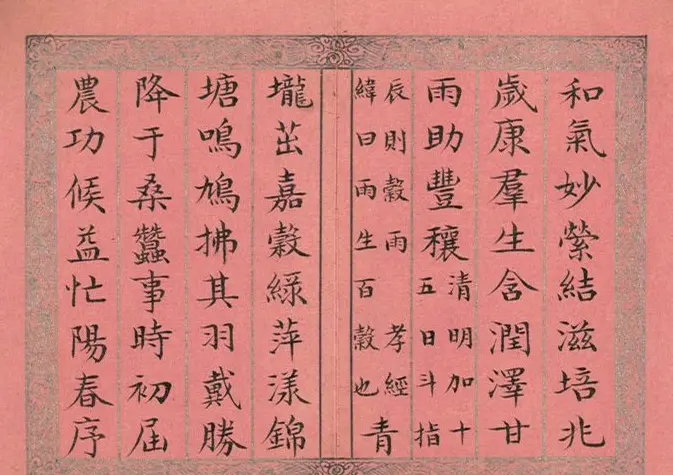 和氣妙縈結滋培兆
歲康羣生含潤澤甘
雨助豐穰
清明加十
五日斗指
辰則穀雨孝經
緯曰雨生百穀也
青
壠茁嘉穀綠萍漾錦
塘鳴鳩拂其羽戴勝
降于桑蠶事時初屆
農功候益忙陽春序